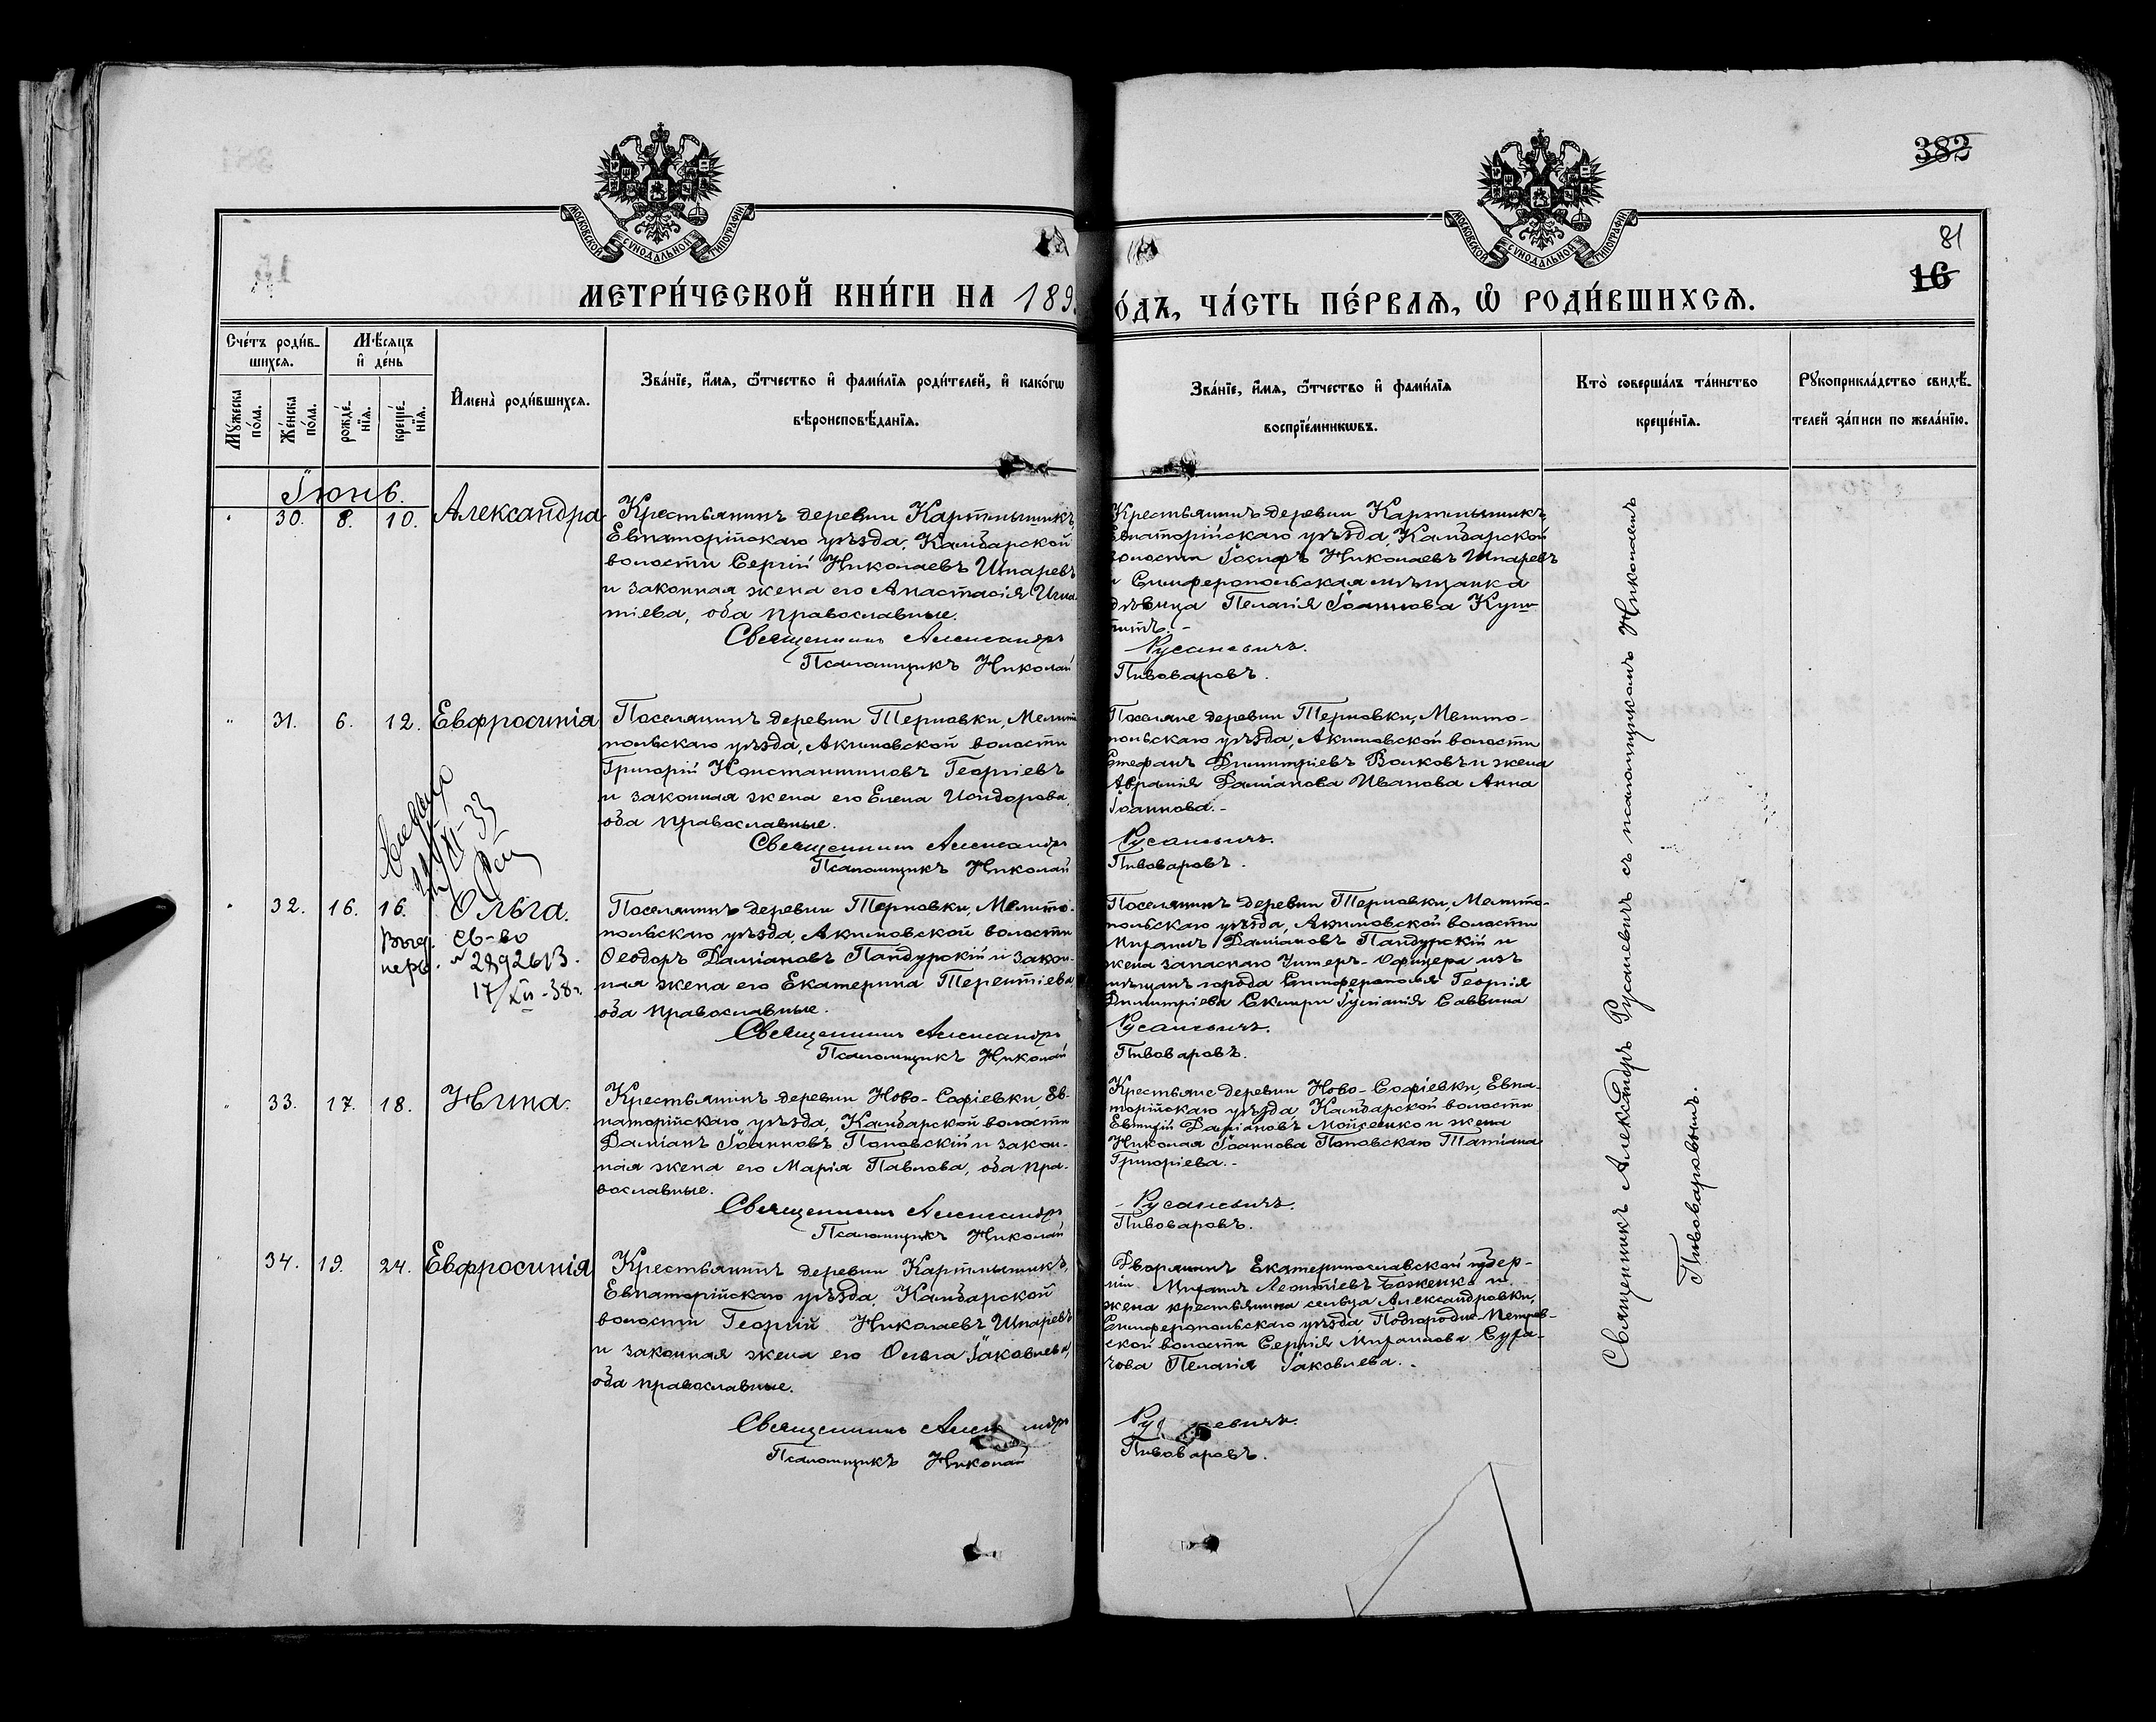 382
81
16
МОСКОВСКОЙ СѴНОДАЛЬНОЙ ТИПОГРАФІИ
МОСКОВСКОЙ СѴНОДАЛЬНОЙ ТИПОГРАФІИ
МЕТРИ́ЧЕСКОЙ КНИ́ГИ НА 189
О́ДЪ, ЧА́СТЬ ПЕ́РВАѦ, Ѽ РОДИ́ВШИХСѦ.
Сче́тъ роди́в-
шихсѧ.
Мꙋ́жеска по́ла.
Же́нска по́ла.
Мѣ́сѧцъ
и҆ де́нь
рожде́-нїѧ.
креще́-нїѧ.
И҆мена̀ роди́вшихсѧ.
Зва́нїе, и҆́мѧ, ѻ҆́тчество и҆ фами́лїѧ роди́телей, и҆ како́гѡ
вѣроисповѣ́данїѧ.
Зва́нїе, и҆́мѧ, ѻ҆́тчество и҆ фами́лїѧ
воспрїе́мникѡвъ.
Кто̀ соверша́лъ та́инство
креще́нїѧ.
Рꙋкоприкла́дство свидѣ́-
телей за́писи по жела́нїю.
Іюнь.
30. 8. 10. Александра
Крестьянинъ деревни Картмышикъ,
Евпаторійскаго уѣзда, Камбарской
волости Сергій Николаевъ Шпаревъ
и законная жена его Анастасія Игна-
тіева, оба православные.
Священникъ Александръ
Псаломщикъ Николай
Крестьянинъ деревни Картмышикъ
Евпаторійскаго уѣзда, Камбарской
волости Іосифъ Николаевъ Шпаревъ
и Симферопольская мѣщанка
дѣвица Пелагія Іоаннова
Русаневичъ.
Пивоваровъ.
31. 6. 12. Евфросинія
Поселянинъ деревни Терновки, Мелито
польскаго уѣзда, Акимовской волости
Григорій Константиновъ Георгіевъ
и законная жена его Елена Исидорова,
оба православные.
Священникъ Александръ
Псаломщикъ Николай
Поселяне деревни Терновки, Мелито-
польскаго уѣзда, Акимовской волости
Стефанъ Димитріевъ Волковъ и жена
Авраміѧ Даміанова Иванова Анна
Іоаннова.-
Русаневичъ.
Пивоваровъ.
XI-33
32. 16. 16. Ольга.
Выд. св-во
№ 289261В.
17/XII-38г.
Поселянинъ деревни Терновки, Мелито-
польскаго уѣзда, Акимовской волости
Ѳеодоръ Даміановъ Пандурскій и закон-
ная жена его Екатерина Терентіева
оба православные.
Священникъ Александръ
Псаломщикъ Николай
Поселянинъ деревни Терновки, Мелито-
польскаго уѣзда, Акимовской волости
Михаилъ Даміановъ Пандурскій и
жена запаснаго Унтеръ-Офицера изъ
мѣщанъ города Симферополя Георгія
Димитріева Іуліанія Саввина
Русаневичъ.
Пивоваровъ.
33. 17. 18. Нина.
Крестьянинъ деревни Ново-Софіевки, Ев-
паторійскаго уѣзда, Камбарской волости
Даміанъ Іоанновъ Поповскій и закон-
ная жена его Марія Павлова, оба пра-
вославные.
Священникъ Александръ
Псаломщикъ Николай
Крестьяне деревни Ново-Софіевки, Евпа-
торійскаго уѣзда, Камбарской волости
Евѳимій Даміановъ Мойсеенко и жена
Николая Іоаннова Поповскаго Татіана
Григоріева.-
Русаневичъ.
Пивоваровъ.
34. 19. 24. Евфросинія
Крестьянинъ деревни Картмышикъ,
Евпаторійскаго уѣзда, Камбарской
волости Георгій Николаевъ Шпаревъ
и законная жена его Ольга Іаковлева,
оба православные.
Священникъ Александръ
Псаломщикъ Николай
Дворянинъ Екатеринославской губер-
ніи Михаилъ Леонтіевъ Боженко и
жена крестьянина сельца Александровки,
Симферопольскаго уѣзда Подгородне-Петров-
ской волости Сергія Михаилова
Пелагія Іаковлева.-
Русаневичъ.
Пивоваровъ.
Священникъ Александръ Русаневичъ съ псаломщикомъ Николаемъ
Пивоваровымъ.